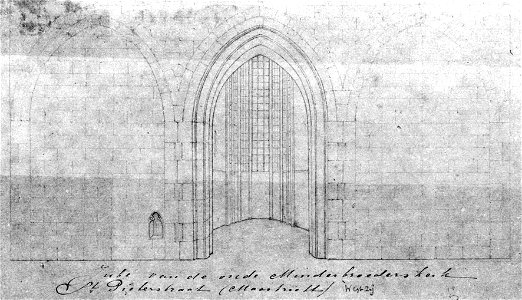 van de oude Minderbroederskerk
St Pieterstraat (Maastricht)